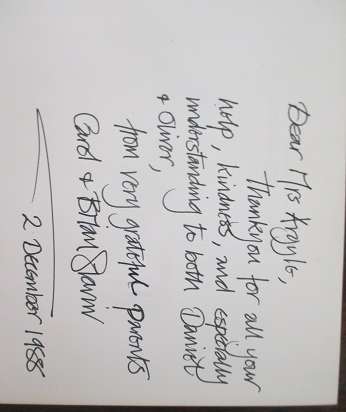 Dear Mrs Argyle,
Thankyou for all your
help, kindness, and especially
understanding to both Daniel
& Oliver,
from very grateful parents
Carol & Brian
2 December 1988